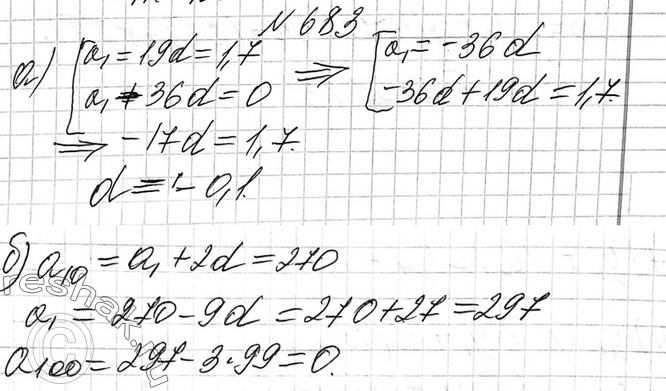 № 683
а) a₁ = 19d = 1,7 ⇒ a₁ = -36d
a₁ + 36d = 0 -36d + 19d = 1,7.
⇒ -17d = 1,7.
d = -0,1.
б) a₁₀ = a₁ + 2d = 270
a₁ = 270 - 9d = 270 + 27 = 297
a₁₀₀ = 297 - 3·99 = 0.
reshak.ru